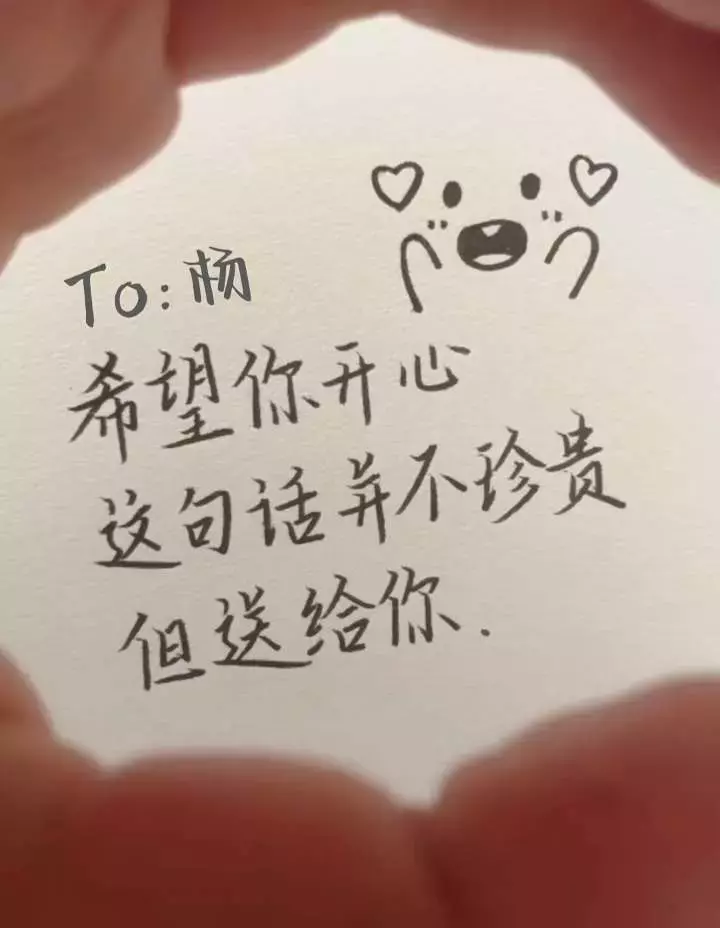 To:杨
希望你开心
这句话并不珍贵
但送给你.